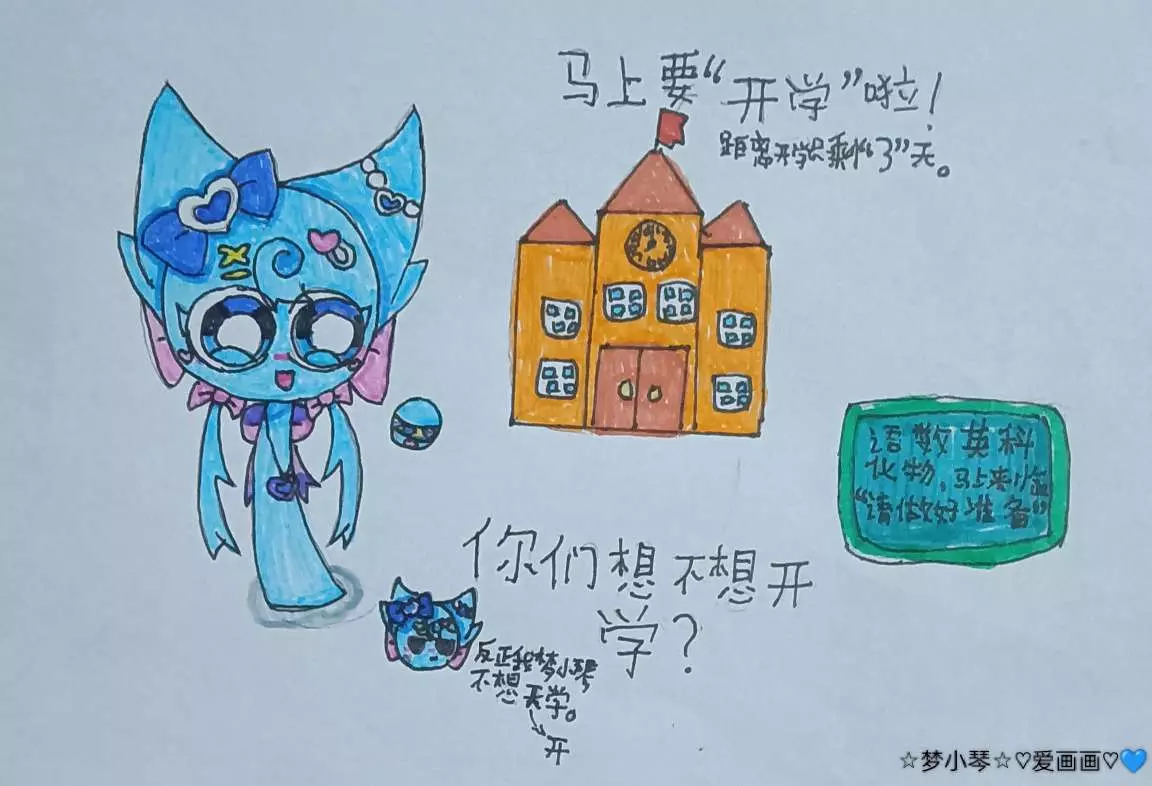 马上要“开学”啦！
距离开学只剩“3”天。
语数英科
化物，马上来临
“请做好准备”
你们想不想开
学？
反正我梦小琴
不想开学。
开
☆梦小琴☆♡爱画画♡💙